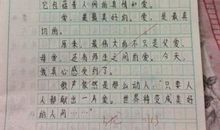 它包含着人间的真情和爱。
爱，是最美好的，爱，是最真切的。
原来，最伟大的不只是父爱、
母爱，还有师生之间的爱。今天，
我真心感受到了。
歌声依然是那么动人：“只要人
人都献出一片爱，世界将变成美好
的人间……”